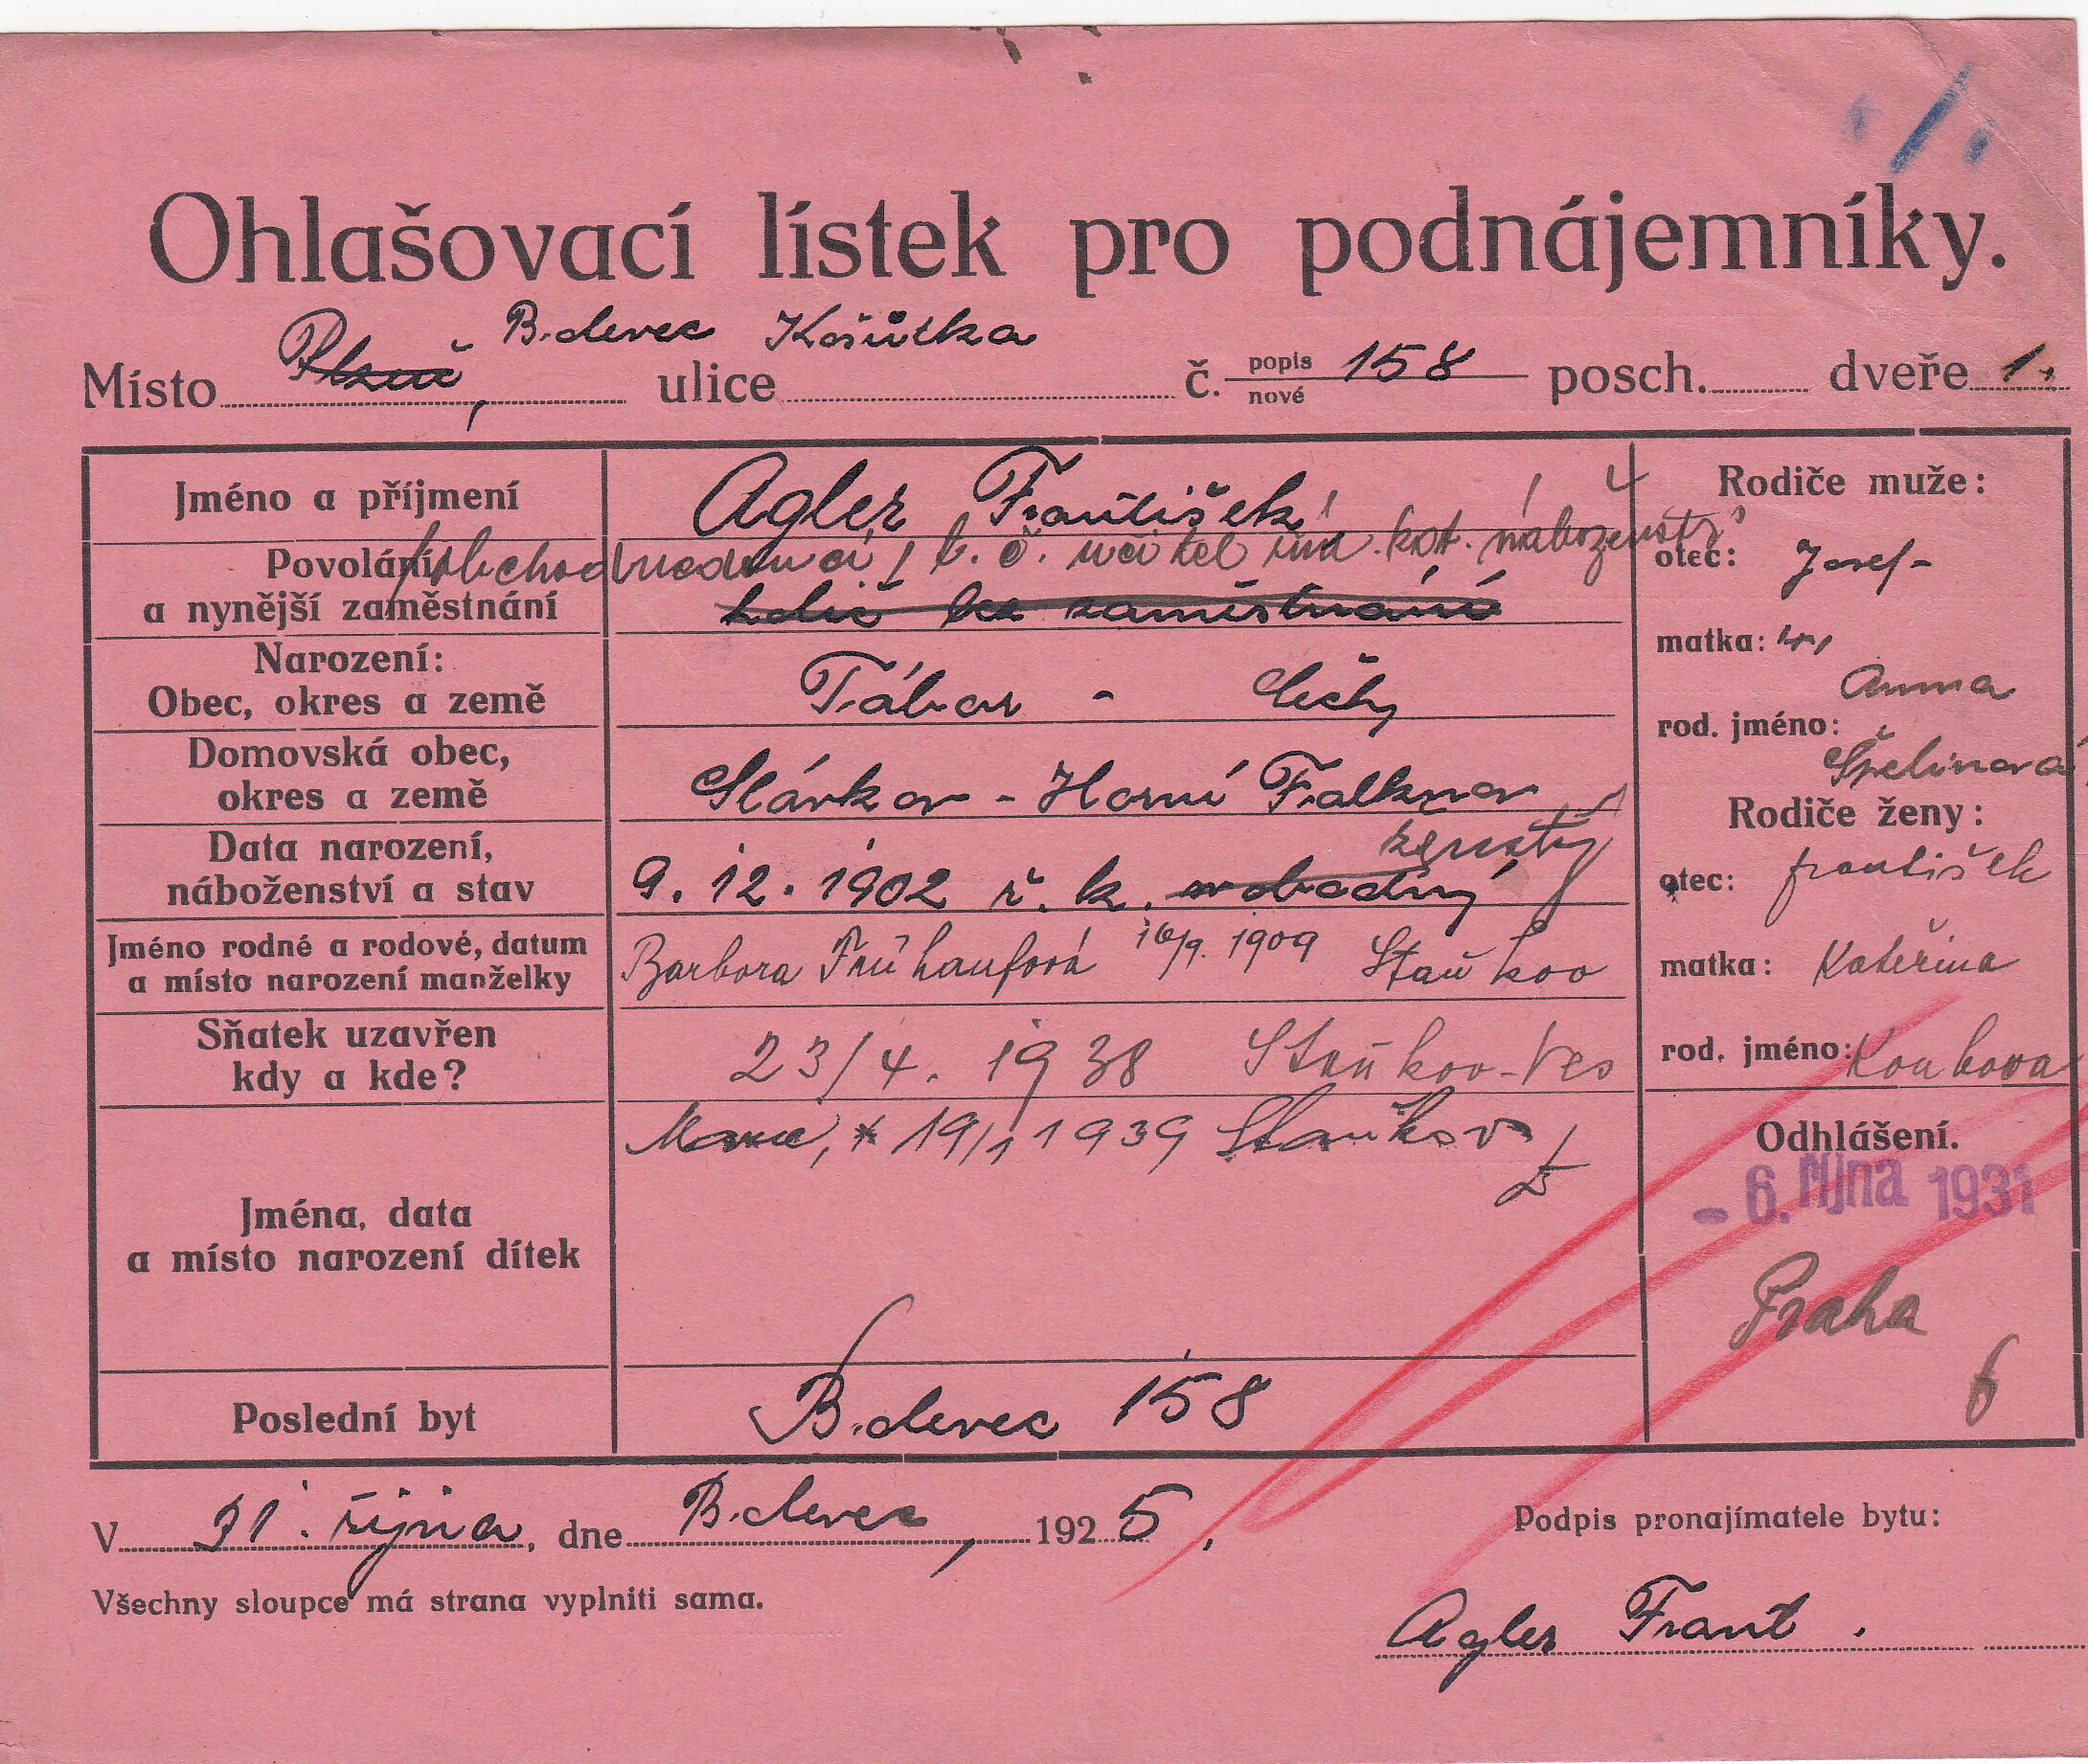 Ohlašovací lístek pro podnájemníky.
Místo Plzeň, B.devec ulice Košůtka č. popis 158 nové posch. dveře 1.
Jméno a příjmení Agler František
Povolání a nynější zaměstnání t. č. učitel náboženství
holič bez zaměstnání
Narození:
Obec, okres a země Tábor - Čechy
Domovská obec,
okres a země Slávkov - Horní Falknov
Data narození,
náboženství a stav 9. 12. 1902 ř. k. svobodný ženatý
Jméno rodné a rodové, datum
a místo narození manželky Barbora Frühaufová 16/9. 1909 Staňkov
Sňatek uzavřen
kdy a kde? 23/4. 1938 Staňkov-Ves
Jména, data
a místo narození dítek Marie, * 19/1 1939 Staňkov
Poslední byt B.devec 158
Rodiče muže:
otec: Josef
matka: Anna
rod. jméno: Špelinová
Rodiče ženy:
otec: František
matka: Kateřina
rod. jméno: Koubova
Odhlášení.
- 6. října 1931
Praha
V 31. října, dne B.devec, 1925.
Podpis pronajímatele bytu:
Všechny sloupce má strana vyplniti sama.
Agler Frant.